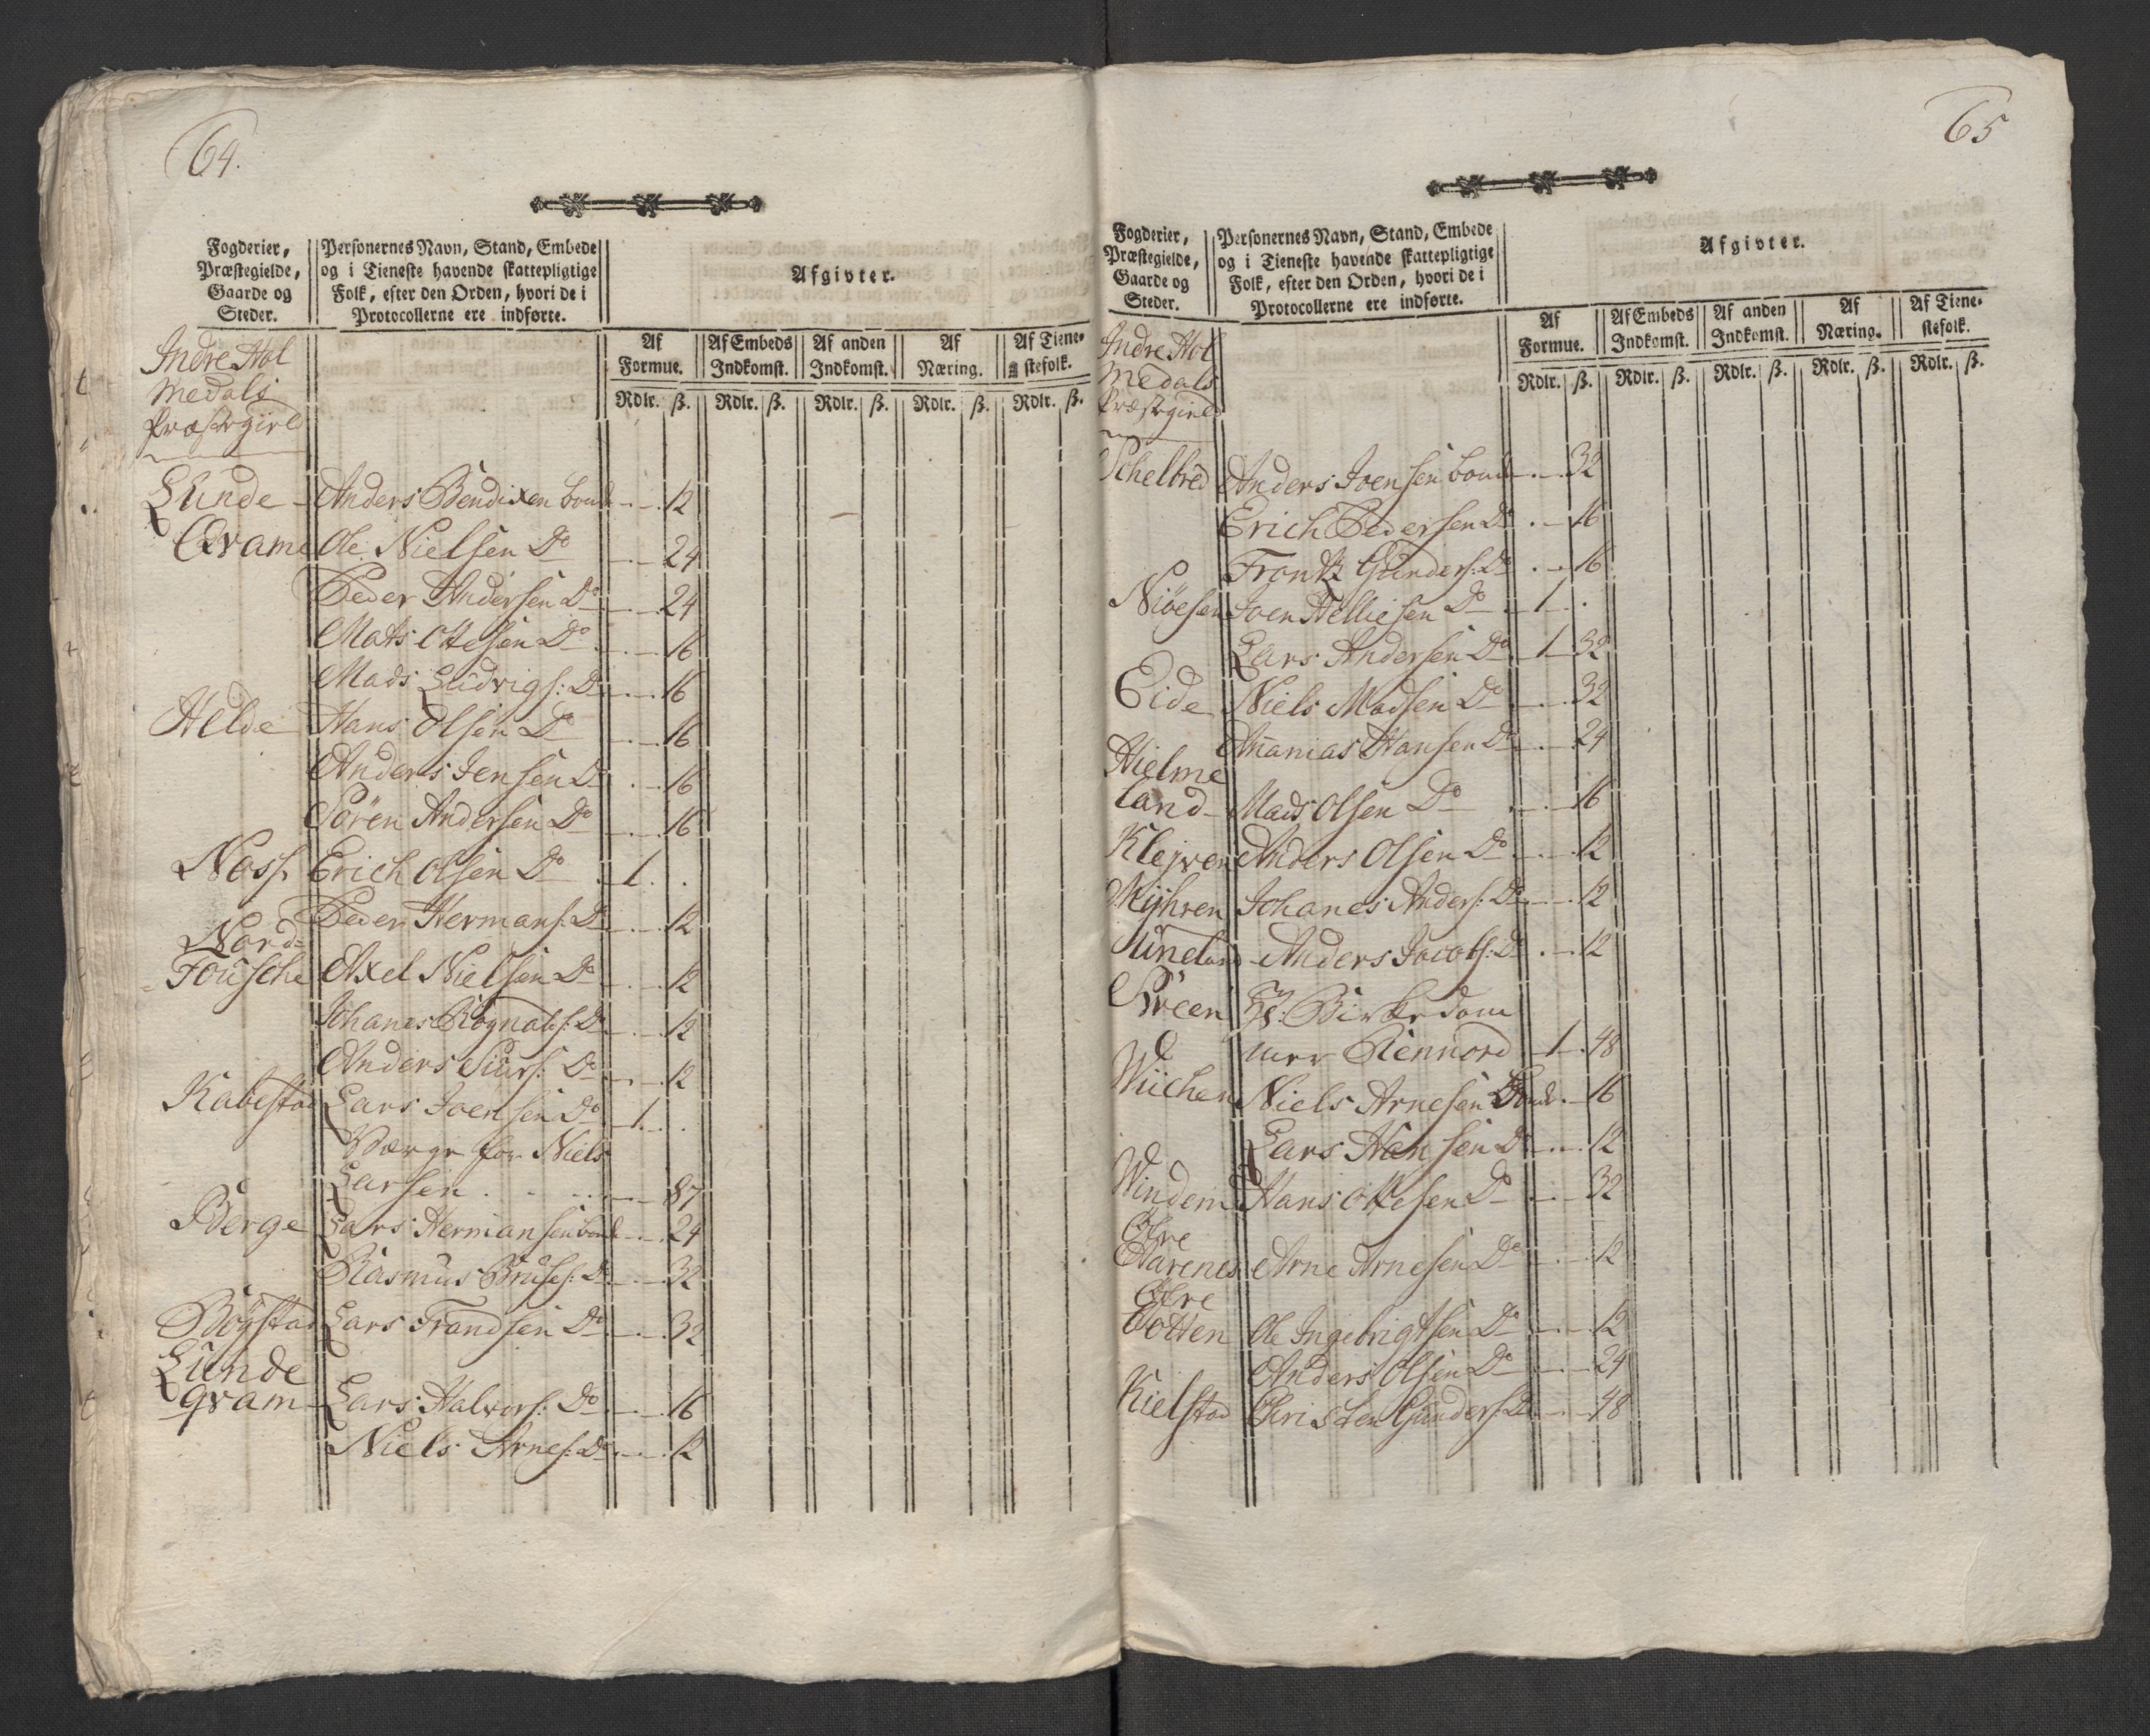 64.
Fogderier, Præstegielde, Gaarde og Steder.
Personernes Navn, Stand, Embede og i Tieneste havende skattepligtige Folk, efter den Orden, hvori de i Protocollerne ere indførte.
Afgivter.
Af Formue. Af Embeds Indkomst. Af anden Indkomst. Af Næring. Af Tienestefolk.
Rdlr. ß. Rdlr. ß. Rdlr. ß. Rdlr. ß. Rdlr. ß.
Indre Hol
medals
Præstegield
Lunde - Anders Bendixen bonde - 12
Qvame Ole Nielsen Do - 24
Peder Andersen Do - 24
Mats Ottesen Do - 16
Mads Ludvigs: Do - 16
Helde Hans Olsen Do - 16
Anders Jensen Do - 16
Sören Andersen Do - 16
Noss. Erich Olsen Do 1 .
Peder Hermans: Do - 12
Nord-
Fousche Axel Nielsen Do - 12
Johanes Rognals: Do - 12
Anders Siurs: Do - 12
Kabestad Lars Joensen Do 1 .
Værge for Niels
Larsen - 87
Berge Lars Hermansen bonde - 24
Rasmus Bruses: Do - 32
Bogstad Lars Frandsen Do - 32
Lunde
qvam - Lars Halvors: Do - 16
Niels Arnes: Do - 12
65
Fogderier, Præstegielde, Gaarde og Steder.
Personernes Navn, Stand, Embede og i Tieneste havende skattepligtige Folk, efter den Orden, hvori de i Protocollerne ere indførte.
Afgivter.
Af Formue. Af Embeds Indkomst. Af anden Indkomst. Af Næring. Af Tienestefolk.
Rdlr. ß. Rdlr. ß. Rdlr. ß. Rdlr. ß. Rdlr. ß.
Indre Hol
medals
Præstegield
Schelbred Anders Joensen bonde - 32
Erich Pedersen Do - 16
Frantz Gunders: Do - 16
Niøesen Joen Helliesen Do 1 .
Lars Andersen Do 1 32
Eide Niels Madsen Do - 32
Ananias Hansen Do - 24
Hielme
land - Mads Olsen Do - 16
Klejven Anders Olsen Do - 12
Myhren Johanes Anders: Do - 12
Anders Jacobs: Do - 12
Hr: Birkedom
mer Rennord 1 48
Wiichen Niels Arnesen Bonde - 16
Lars Hansen Do - 12
Windem Hans Ottesen Do - 32
Øfre
Aarenes Arne Arnesen Do - 12
Øfre
Totten Ole Ingebrigtsen Do - 12
Anders Olsen Do - 24
Kielstad Christen Gunders: Do - 48